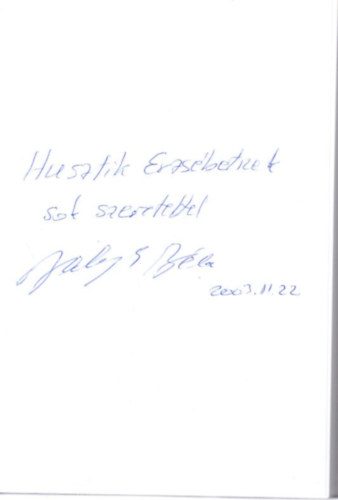 Husztik Erzsébetnek
sok szeretettel
Béla
2003.11.22